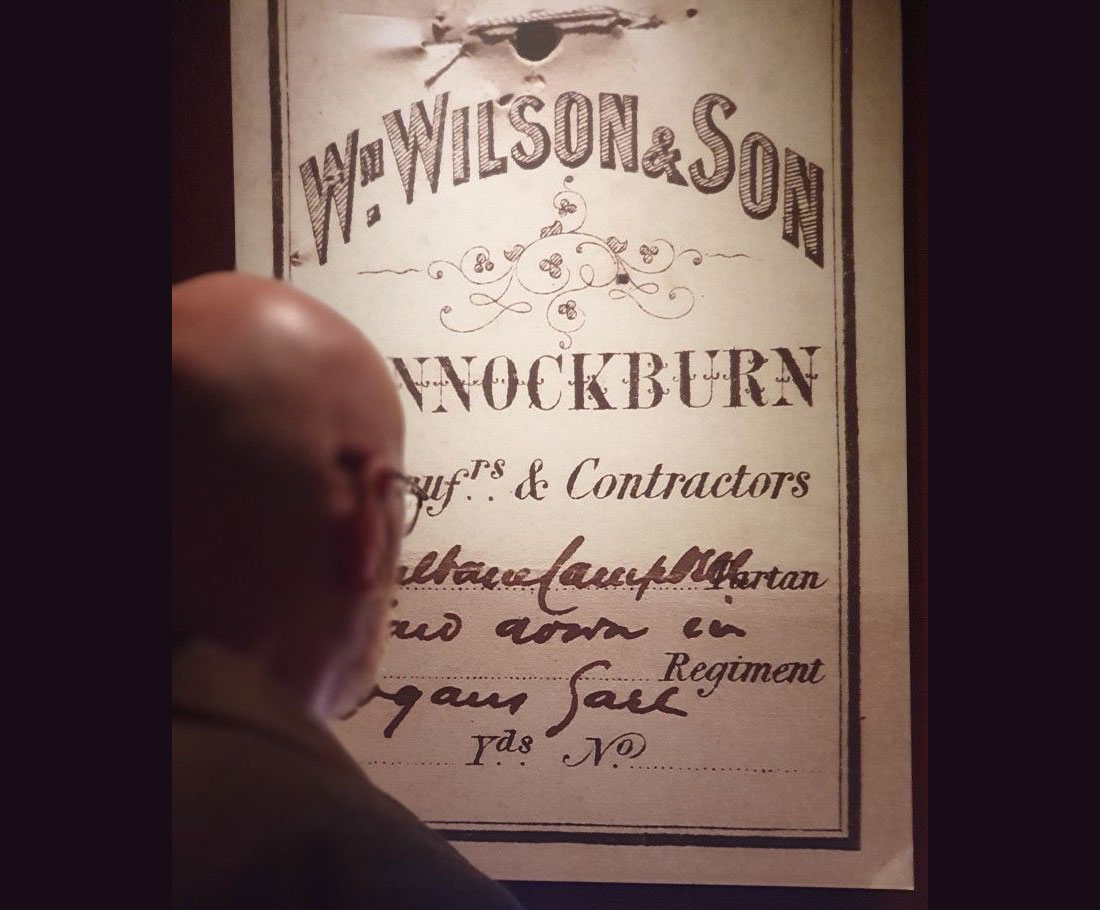 Wm. WILSON & SON
NNOCKBURN
ufrs. & Contractors
Campbell Tartan
down in
Regiment
Yds. No.